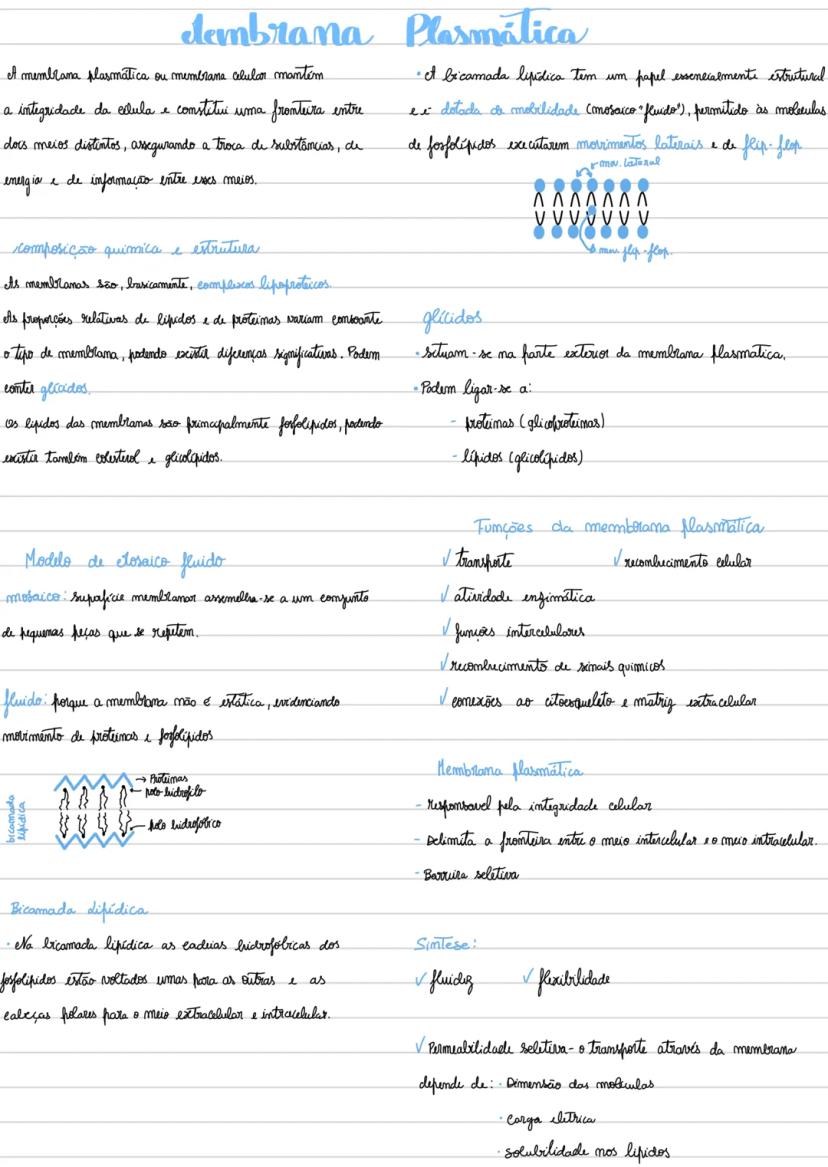 Membrana Plasmática
A membrana plasmática ou membrana celular mantém
a integridade da célula e constitui uma fronteira entre
dois meios distintos, assegurando a troca de substâncias, de
energia e de informação entre esses meios.
composição quimica e estrutura
As membranas são, basicamente, complexos lipoproteicos.
As proporções relativas de lípidos e de proteínas variam consoante
o tipo de membrana, podendo existir diferenças significativas. Podem
conter glícidos.
Os lípidos das membranas são principalmente fosfolípidos, podendo
existir também colesterol e glicolípidos.
Modelo de Mosaico fluido
mosaico: superfície membranar assemelha-se a um conjunto
de pequenas peças que se repetem.
fluido: porque a membrana não é estática, evidenciando
movimento de proteínas e fosfolípidos
→ Proteínas
polo hidrofilo
polo hidrofóbico
bicamada
lipídica
Bicamada Lipídica
· Na bicamada lipídica as cadeias hidrofóbicas dos
fosfolípidos estão voltados umas para as outras e as
cabeças polares para o meio extracelular e intracelular.
· A bicamada lipídica tem um papel essencialmente estrutural
e é dotada de mobilidade (mosaico "fluido"), permitido às moléculas
de fosfolípidos executarem movimentos laterais e de flip-flop
mov. lateral
mov. flip-flop.
glícidos
· Situam-se na parte exterior da membrana plasmática.
· Podem ligar-se a:
- proteínas (glicoproteínas)
- lípidos (glicolípidos)
Funções da membrana plasmática
✓ transporte ✓ reconhecimento celular
✓ atividade enzimática
✓ funções intercelulares
✓ reconhecimento de sinais quimicos
✓ conexões ao citoesqueleto e matriz extracelular
Membrana plasmática
- responsavel pela integridade celular
- Delimita a fronteira entre o meio intercelular e o meio intracelular.
- Barreira seletiva
Síntese:
✓ fluidez ✓ flexibilidade
✓ Permeabilidade seletiva - o transporte através da membrana
depende de: · Dimensão das moléculas
· carga elétrica
· solubilidade nos lípidos